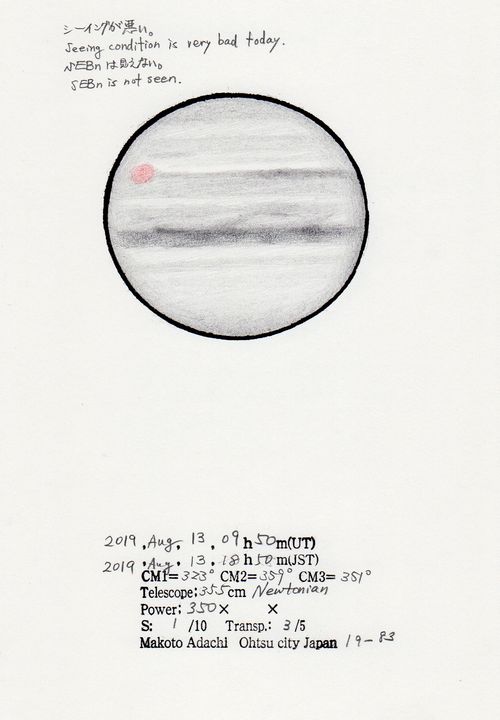 シーイングが悪い。
Seeing condition is very bad today.
SEBn は見えない。
SEBn is not seen.
2019, Aug, 13, 09h50m(UT)
2019, Aug, 13, 18h50m(JST)
CM1= 323° CM2= 359° CM3= 351°
Telescope: 355cm Newtonian
Power: 350× ×
S: 1 /10 Transp.: 3 /5
Makoto Adachi Ohtsu city Japan 19-83